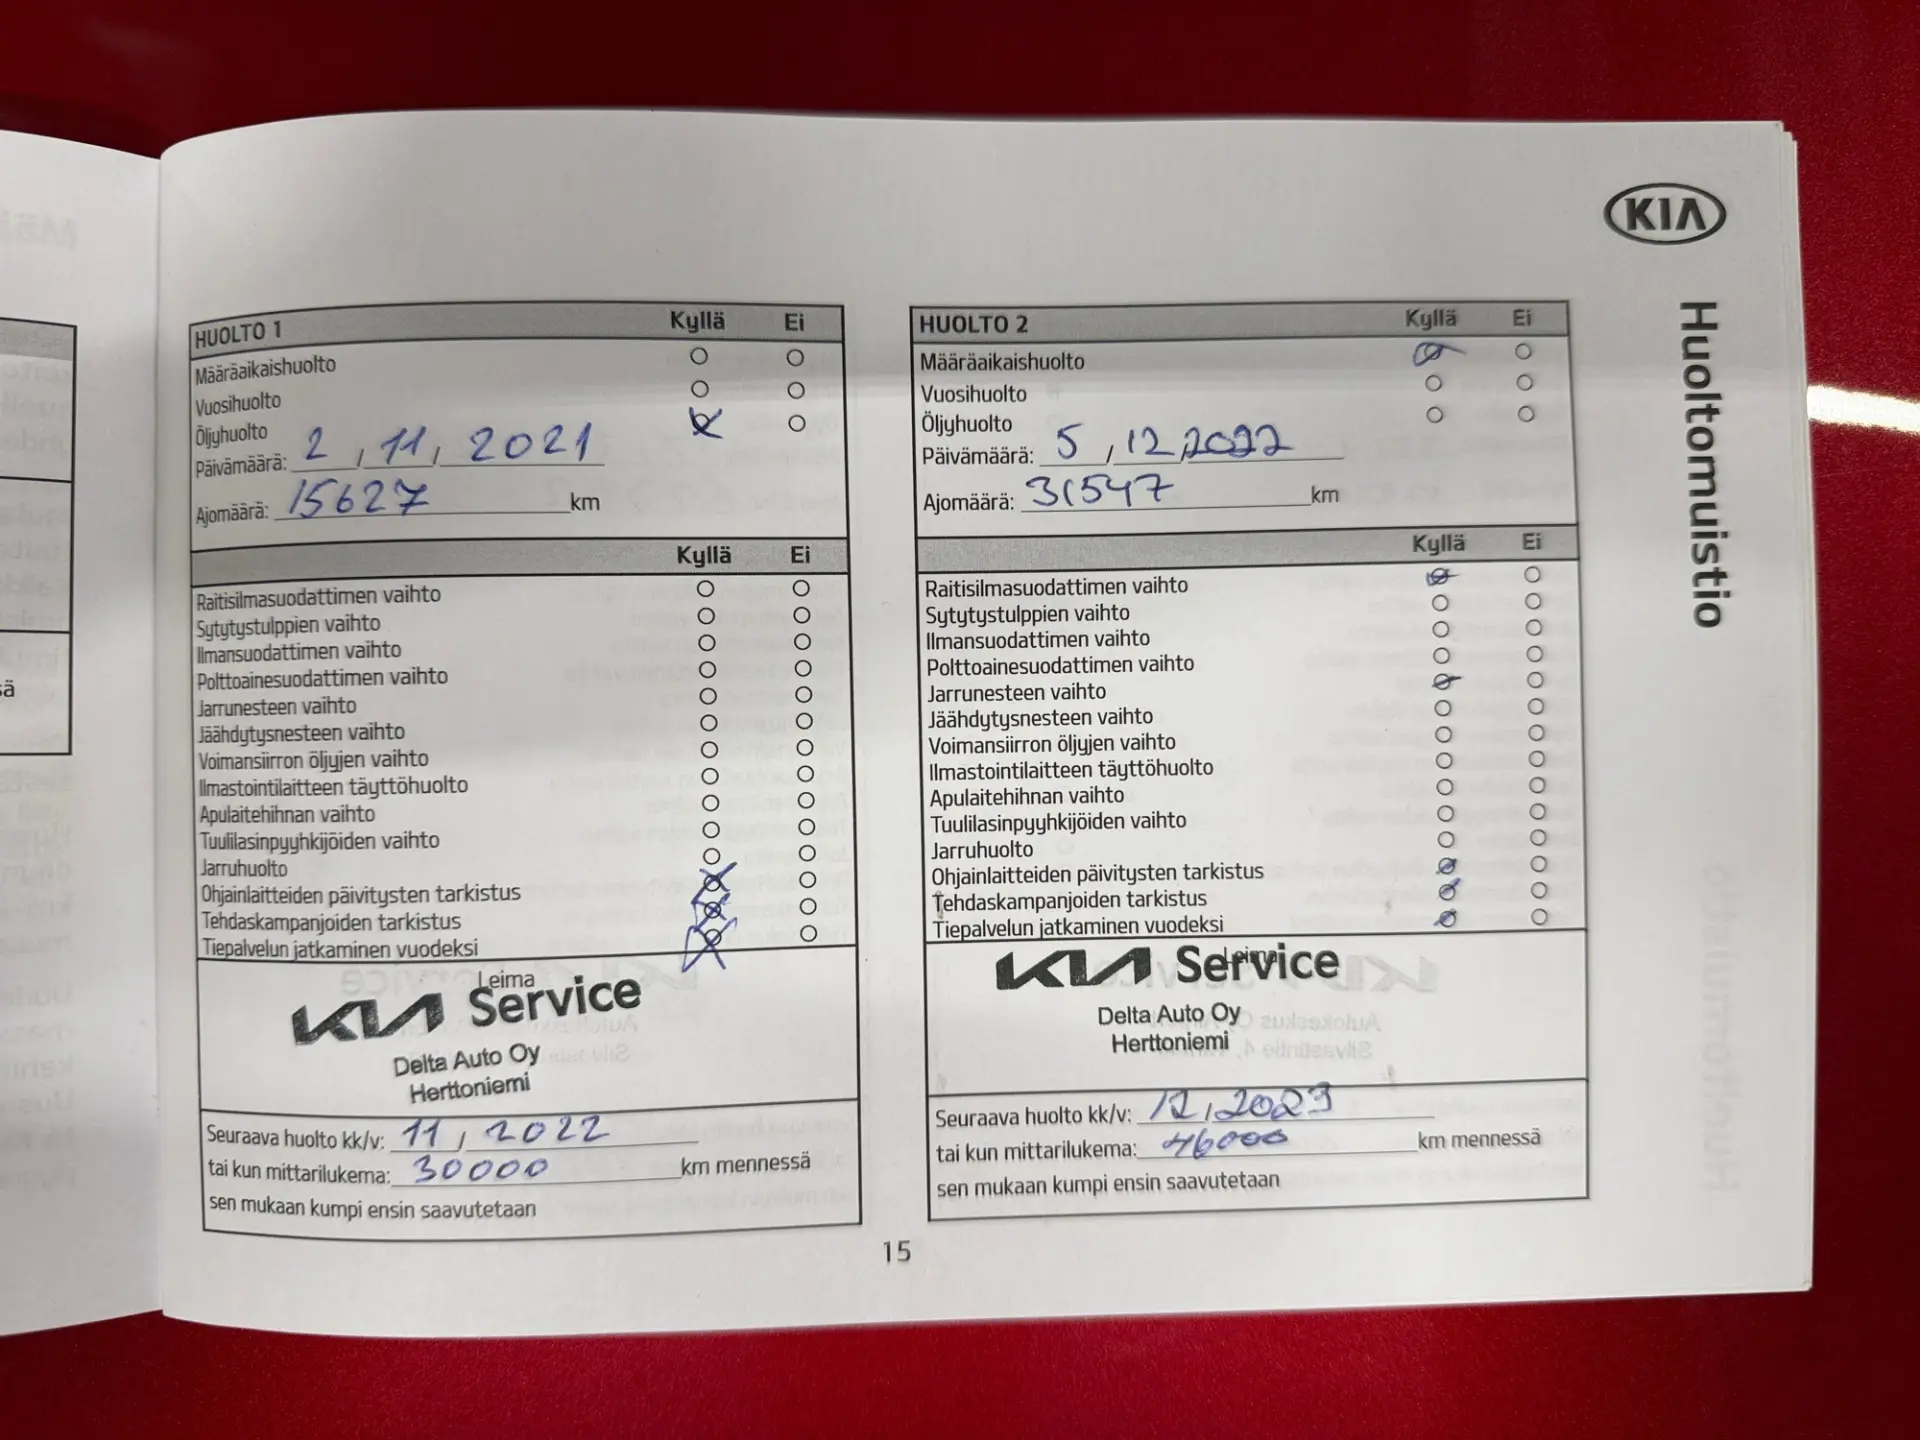 KIA
Huoltomuistio
HUOLTO 1 Kyllä Ei
Määräaikaishuolto
Vuosihuolto
Öljyhuolto
Päivämäärä: 2, 11, 2021
Ajomäärä: 15627 km
Kyllä Ei
Raitisilmasuodattimen vaihto
Sytytystulppien vaihto
Ilmansuodattimen vaihto
Polttoainesuodattimen vaihto
Jarrunesteen vaihto
Jäähdytysnesteen vaihto
Voimansiirron öljyjen vaihto
Ilmastointilaitteen täyttöhuolto
Apulaitehihnan vaihto
Tuulilasinpyyhkijöiden vaihto
Jarruhuolto
Ohjainlaitteiden päivitysten tarkistus
Tehdaskampanjoiden tarkistus
Tiepalvelun jatkaminen vuodeksi
Leima
KIA Service
Delta Auto Oy
Herttoniemi
Seuraava huolto kk/v: 11, 2022
tai kun mittarilukema: 30000 km mennessä
sen mukaan kumpi ensin saavutetaan
HUOLTO 2 Kyllä Ei
Määräaikaishuolto
Vuosihuolto
Öljyhuolto
Päivämäärä: 5, 12, 2022
Ajomäärä: 31547 km
Kyllä Ei
Raitisilmasuodattimen vaihto
Sytytystulppien vaihto
Ilmansuodattimen vaihto
Polttoainesuodattimen vaihto
Jarrunesteen vaihto
Jäähdytysnesteen vaihto
Voimansiirron öljyjen vaihto
Ilmastointilaitteen täyttöhuolto
Apulaitehihnan vaihto
Tuulilasinpyyhkijöiden vaihto
Jarruhuolto
Ohjainlaitteiden päivitysten tarkistus
Tehdaskampanjoiden tarkistus
Tiepalvelun jatkaminen vuodeksi
Leima
KIA Service
Delta Auto Oy
Herttoniemi
Seuraava huolto kk/v: 12, 2023
tai kun mittarilukema: 46000 km mennessä
sen mukaan kumpi ensin saavutetaan
15